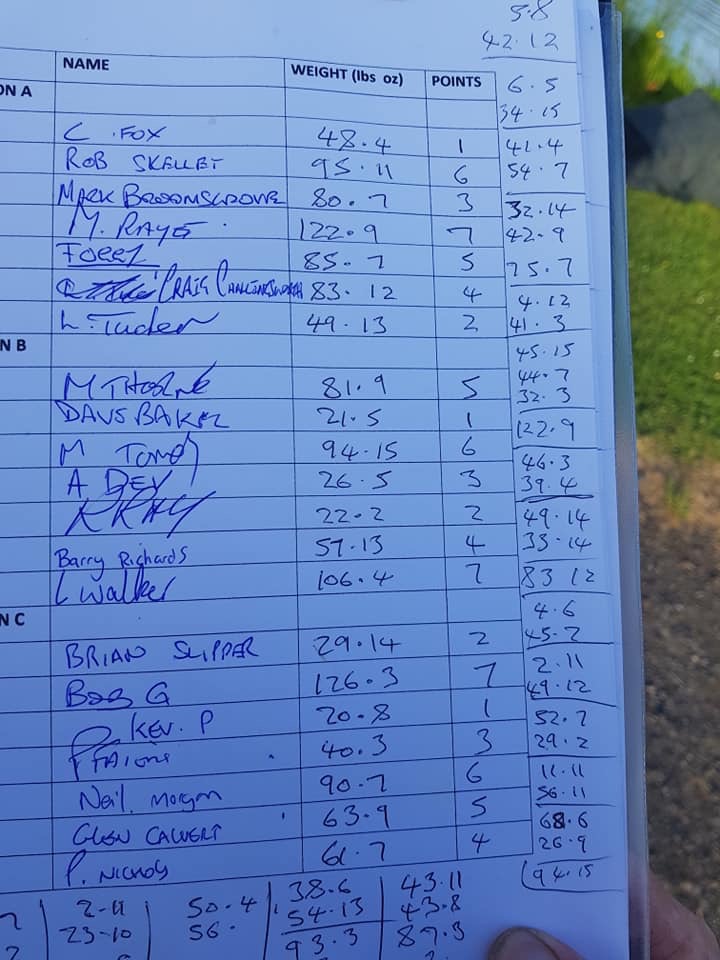 5.8
42.12
NAME WEIGHT (lbs oz) POINTS
ON A
6.5
34.15
C. FOX 48.4 1
41.4
ROB SKELLET 95.11 6
54.7
MARK 80.7 3
32.14
M. RAYE 122.9 7
42.9
85.7 5
75.7
CRAIG 83.12 4
4.12
L. Tucker 49.13 2
41.3
N B
45.15
44.7
M THORNE 81.9 5
32.3
DAVE BAKER 21.5 1
122.9
M 94.15 6
46.3
A DEY 26.5 3
39.4
R RAY 22.2 2
49.14
Barry Richards 57.13 4
33.14
L Walker 106.4 7
83 12
N C
4.6
BRIAN SLIPPER 29.14 2
45.2
2.11
BOB G 126.3 7
49.12
KEV. P 20.8 1
52.7
40.3 3
29.2
Neil Morgan 90.7 6
11.11
56.11
GLEN CALVERT 63.9 5
68.6
P. NICHOLS 61.7 4
26.9
94.15
2-11 50.4 38.6 43.11
23-10 56. 54.13 43.8
93.3 87.3